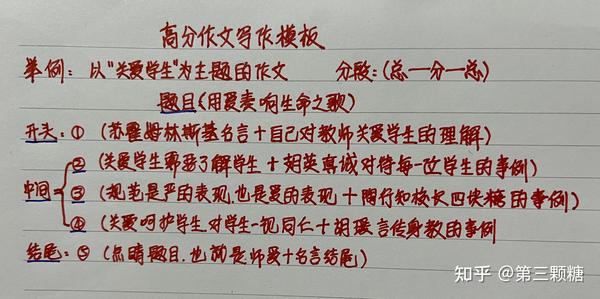 高分作文写作模板
举例：以“关爱学生”为主题的作文 分段：(总一分一总)
题目《用爱奏响生命之歌》
开头：① (苏霍姆林斯基名言+自己对教师关爱学生的理解)
② (关爱学生需要了解学生+胡英真诚对待每一位学生的事例)
中间 ③ (规范是严的表现,也是爱的表现+陶行知校长四块糖的事例)
④ (关爱呵护学生对学生一视同仁+胡瑗言传身教的事例
结尾：⑤ (点晴题目,也就是师爱+名言结尾)
知乎 @第三颗糖